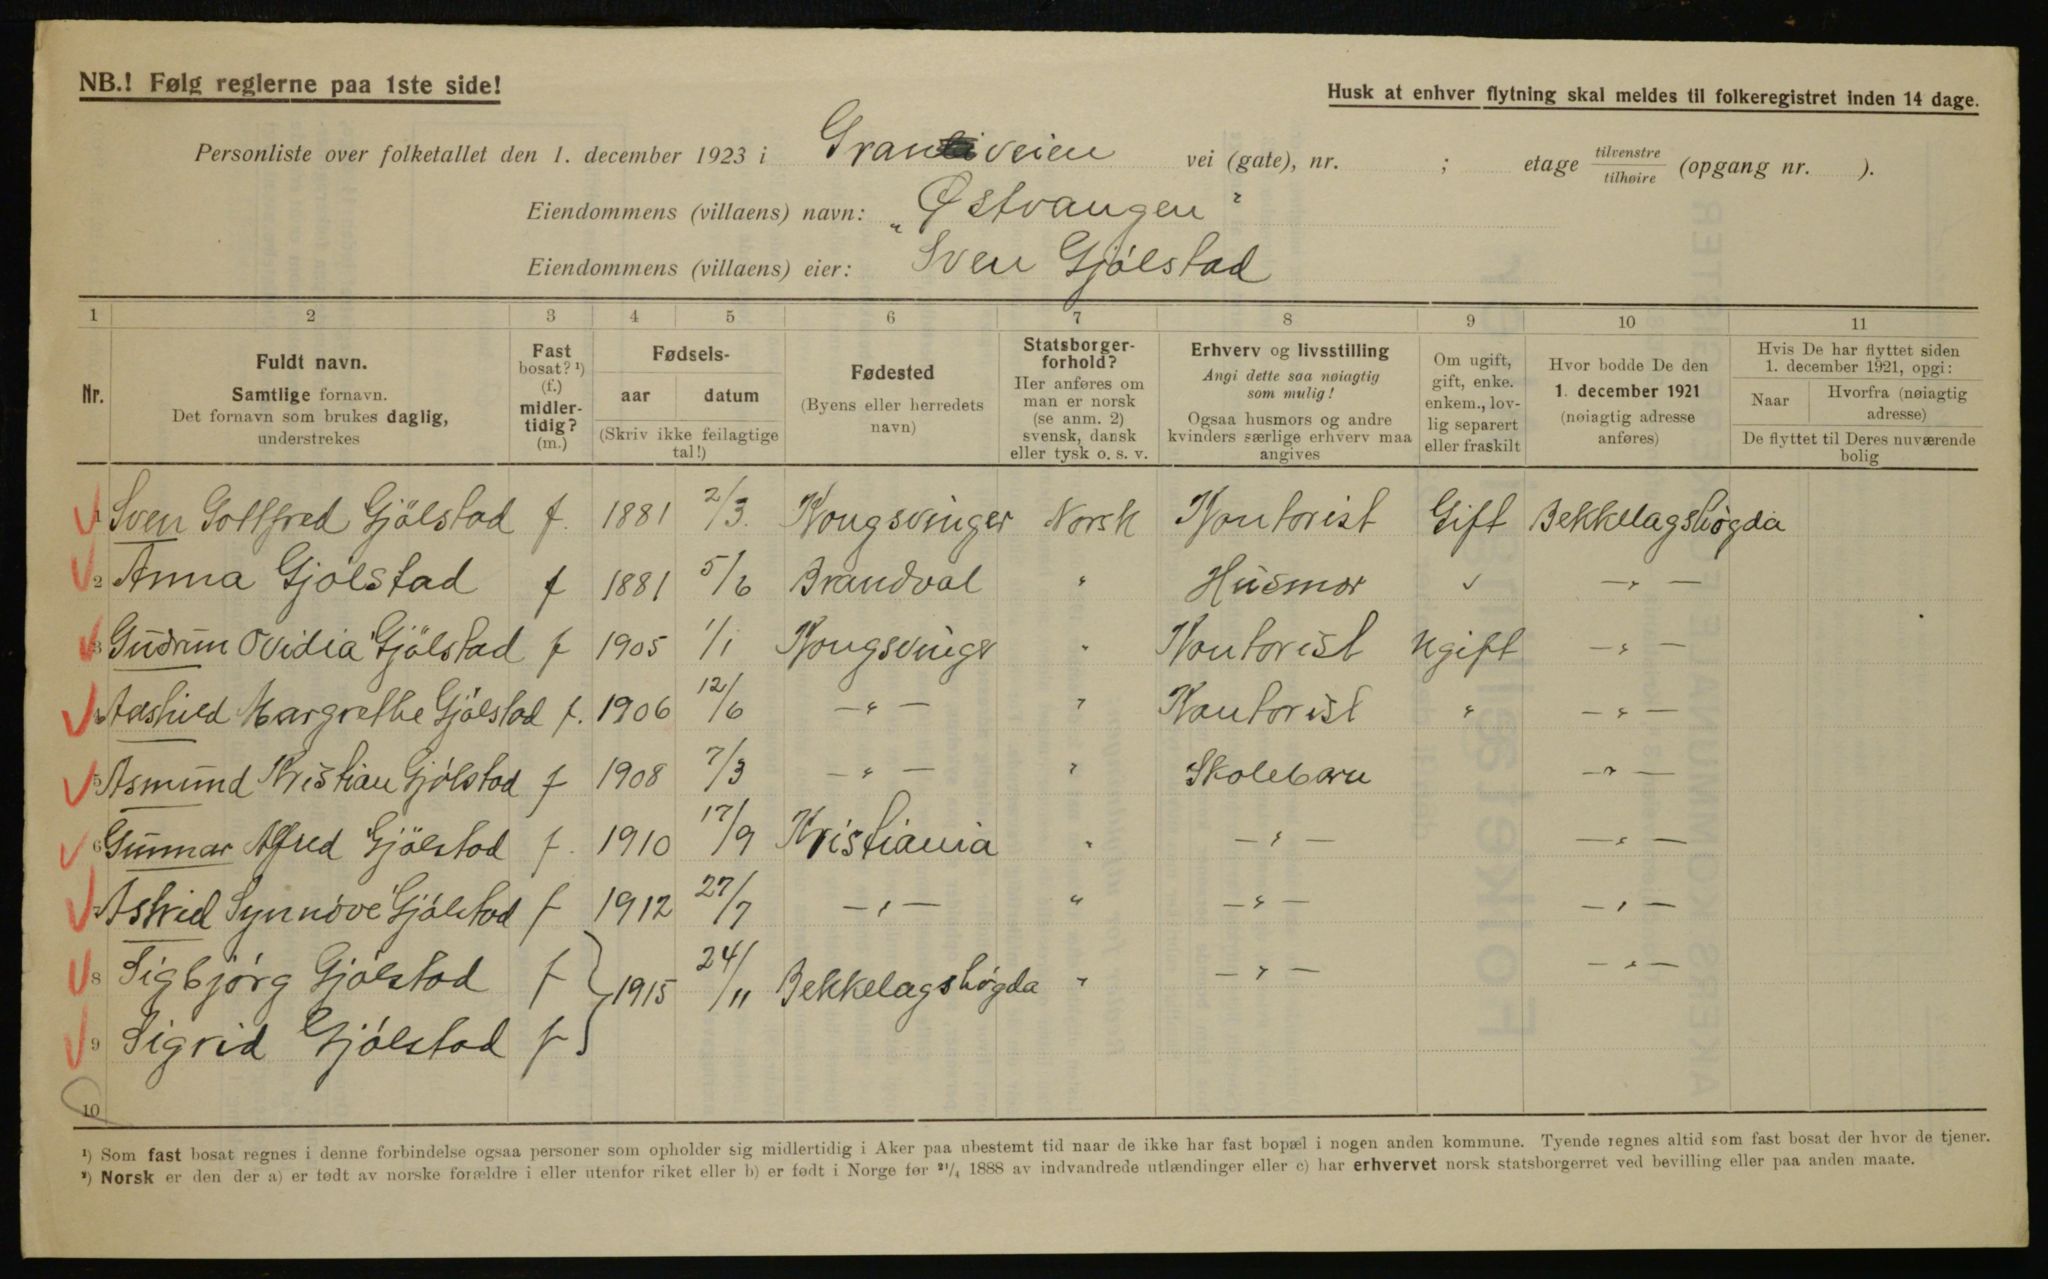 NB.! Følg reglerne paa 1ste side!
Husk at enhver flytning skal meldes til folkeregistret inden 14 dage.
Personliste over folketallet den 1. december 1923 i Granveien vei (gate), nr. ; etage tilvenstre tilhøire (opgang nr. ).
Eiendommens (villaens) navn: „Østvangen"
Eiendommens (villaens) eier: Sven Gjólstad
1 2 3 4 5 6 7 8 9 10 11
Nr.
Fuldt navn.
Samtlige fornavn.
Det fornavn som brukes daglig,
understrekes
Fast
bosat? ¹)
(f.)
midler-
tidig?
(m.)
Fødsels-
aar datum
(Skriv ikke feilagtige
tal!)
Fødested
(Byens eller herredets
navn)
Statsborger-
forhold?
Her anføres om
man er norsk
(se anm. 2)
svensk, dansk
eller tysk o. s. v.
Erhverv og livsstilling
Angi dette saa nøiagtig
som mulig!
Ogsaa husmors og andre
kvinders særlige erhverv maa
angives
Om ugift,
gift, enke.
enkem., lov-
lig separert
eller fraskilt
Hvor bodde De den
1. december 1921
(nøiagtig adresse
anføres)
Hvis De har flyttet siden
1. december 1921, opgi:
Naar Hvorfra (nøiagtig
adresse)
De flyttet til Deres nuværende
bolig
1 Sven Gottfred Gjölstad f. 1881 2/3. Kongsvinger Norsk Kontorist Gift Bekkelagshøgda
2 Anna Gjölstad f 1881 5/6 Brandval " Husmor " — " —
3 Gudrun Ovidia Gjölstad f 1905 1/1 Kongsvinger " Kontorist Ugift — " —
4 Aashild Margrethe Gjölstad f. 1906 12/6 — " — " Kontorist " — " —
5 Asmund Kristian Gjólstad f 1908 7/3 — " — " Skolebarn — " —
6 Gunnar Alfred Gjölstad f. 1910 17/9 Kristiania " — " — — " —
7 Astrid Synnöve Gjólstad f 1912 27/7 — " — " — " — — " —
8 Sigbjørg Gjólstad f 1915 24/11 Bekkelagshøgda " — " — — " —
9 Sigrid Gjólstad f
10
¹) Som fast bosat regnes i denne forbindelse ogsaa personer som opholder sig midlertidig i Aker paa ubestemt tid naar de ikke har fast bopæl i nogen anden kommune. Tyende regnes altid som fast bosat der hvor de tjener.
²) Norsk er den der a) er født av norske forældre i eller utenfor riket eller b) er født i Norge før ²¹/₄ 1888 av indvandrede utlændinger eller c) har erhvervet norsk statsborgerret ved bevilling eller paa anden maate.